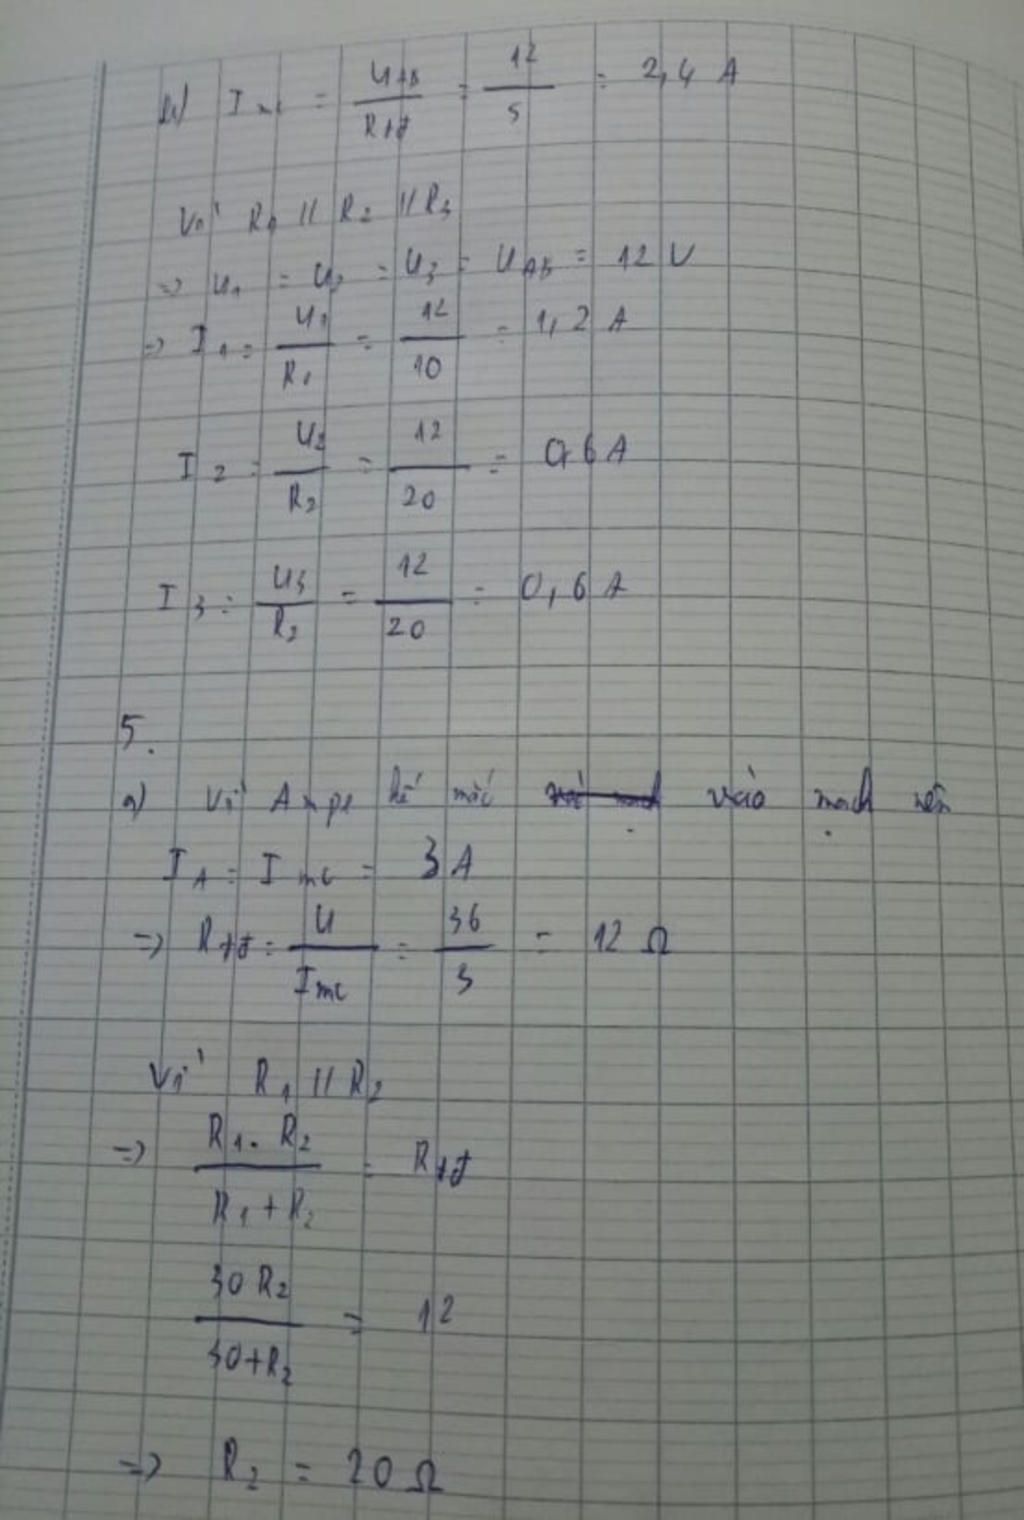 b) I mc = U AB / R tđ = 12 / 5 = 2,4 A
Vì R1 // R2 // R3
=> U1 = U2 = U3 = U AB = 12 V
=> I1 = U1 / R1 = 12 / 10 = 1,2 A
I2 = U2 / R2 = 12 / 20 = 0,6 A
I3 = U3 / R2 = 12 / 20 = 0,6 A
5.
a) Vì Ampe kế mắc vào mạch nên
I A = I mc = 3 A
=> R tđ = U / I mc = 36 / 3 = 12 Ω
Vì R1 // R2
=> R1. R2 / R1 + R2 = R tđ
30 R2 / 30+R2 = 12
=> R2 = 20 Ω